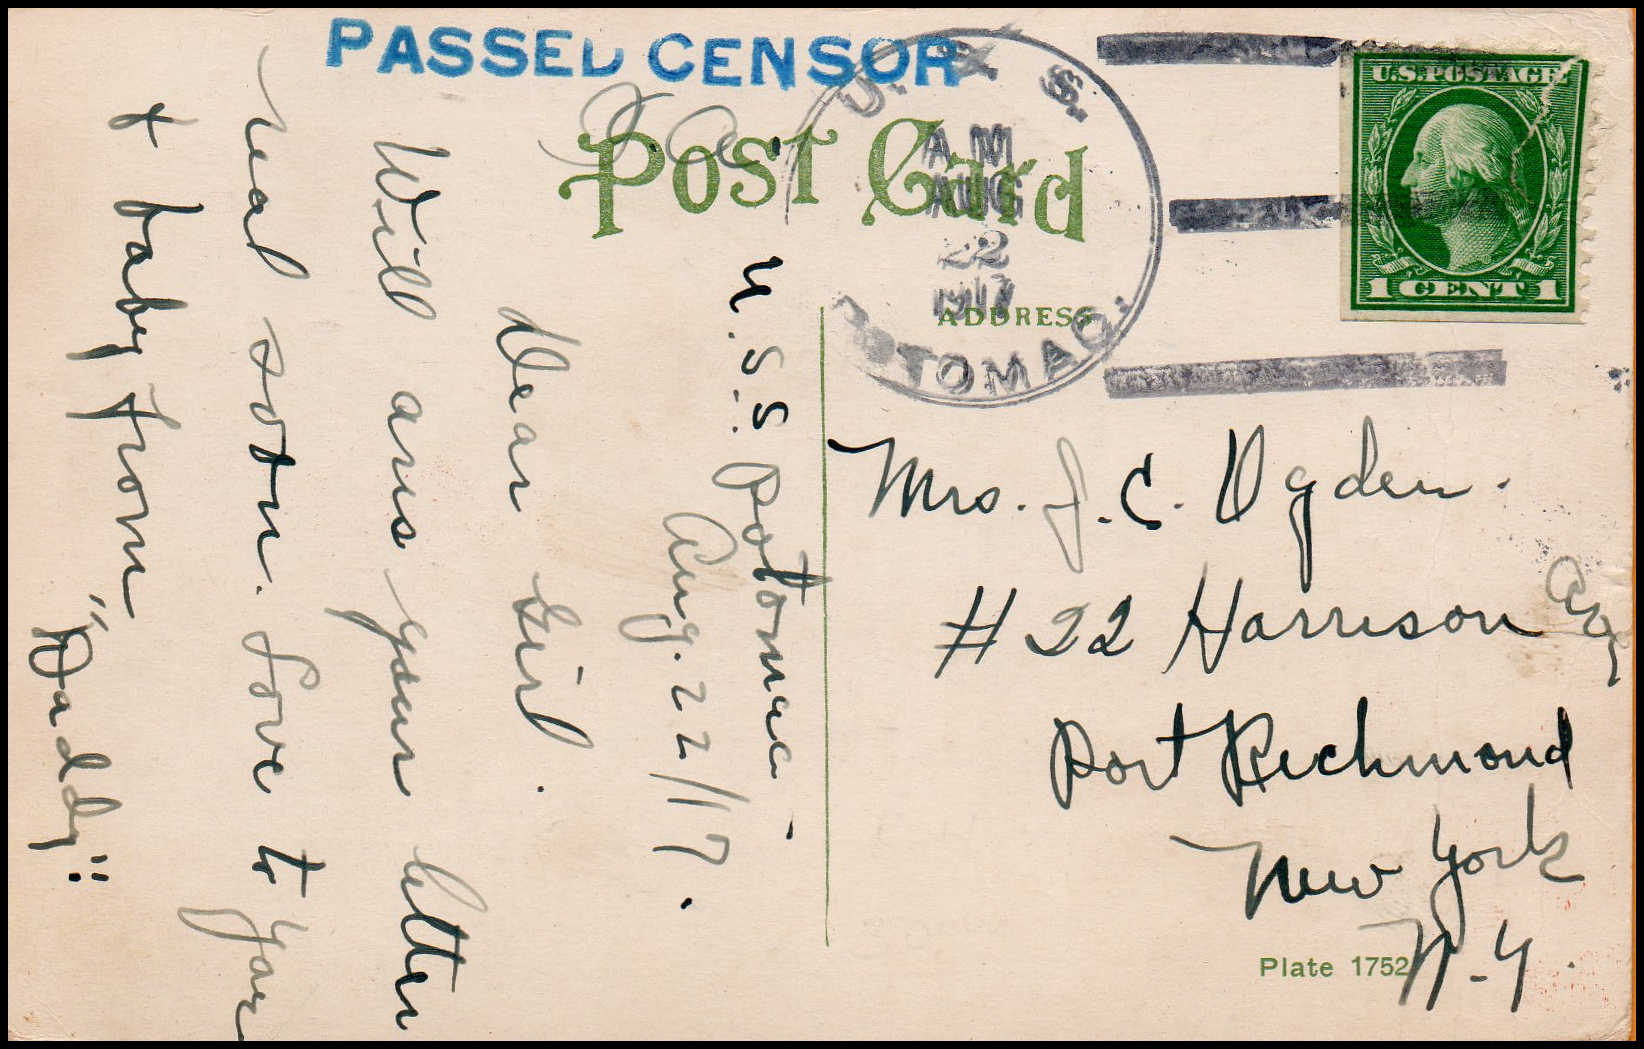 PASSED CENSOR
POST CARD
U. S. S.
AM
AUG
22
1917
POTOMAC.
U.S.POSTAGE
1 CENT 1
ADDRESS
U.S.S. Potomac -
Aug. 22/17.
Dear Girl.
Will ans your letter
real soon. Love to
+ baby from,
"Daddy"
Mrs. J. C. Ogden.
# 22 Harrison Ave
Port Richmond
New York
N.Y.
Plate 1752